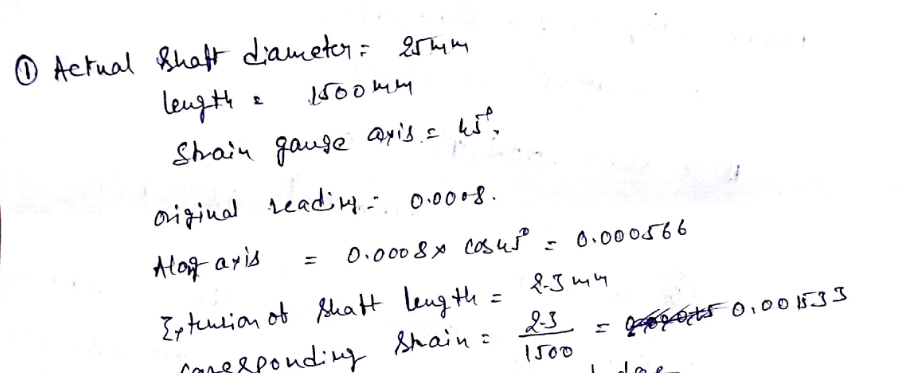 ① Actual Shaft diameter = 25mm
length = 1500mm
Strain gauge axis = 45°.
original reading = 0.0008.
Along axis = 0.0008 x cos45° = 0.000566
Extention of Shaft length = 2.3mm
Corresponding Strain = 2.3/1500 = 0.001533